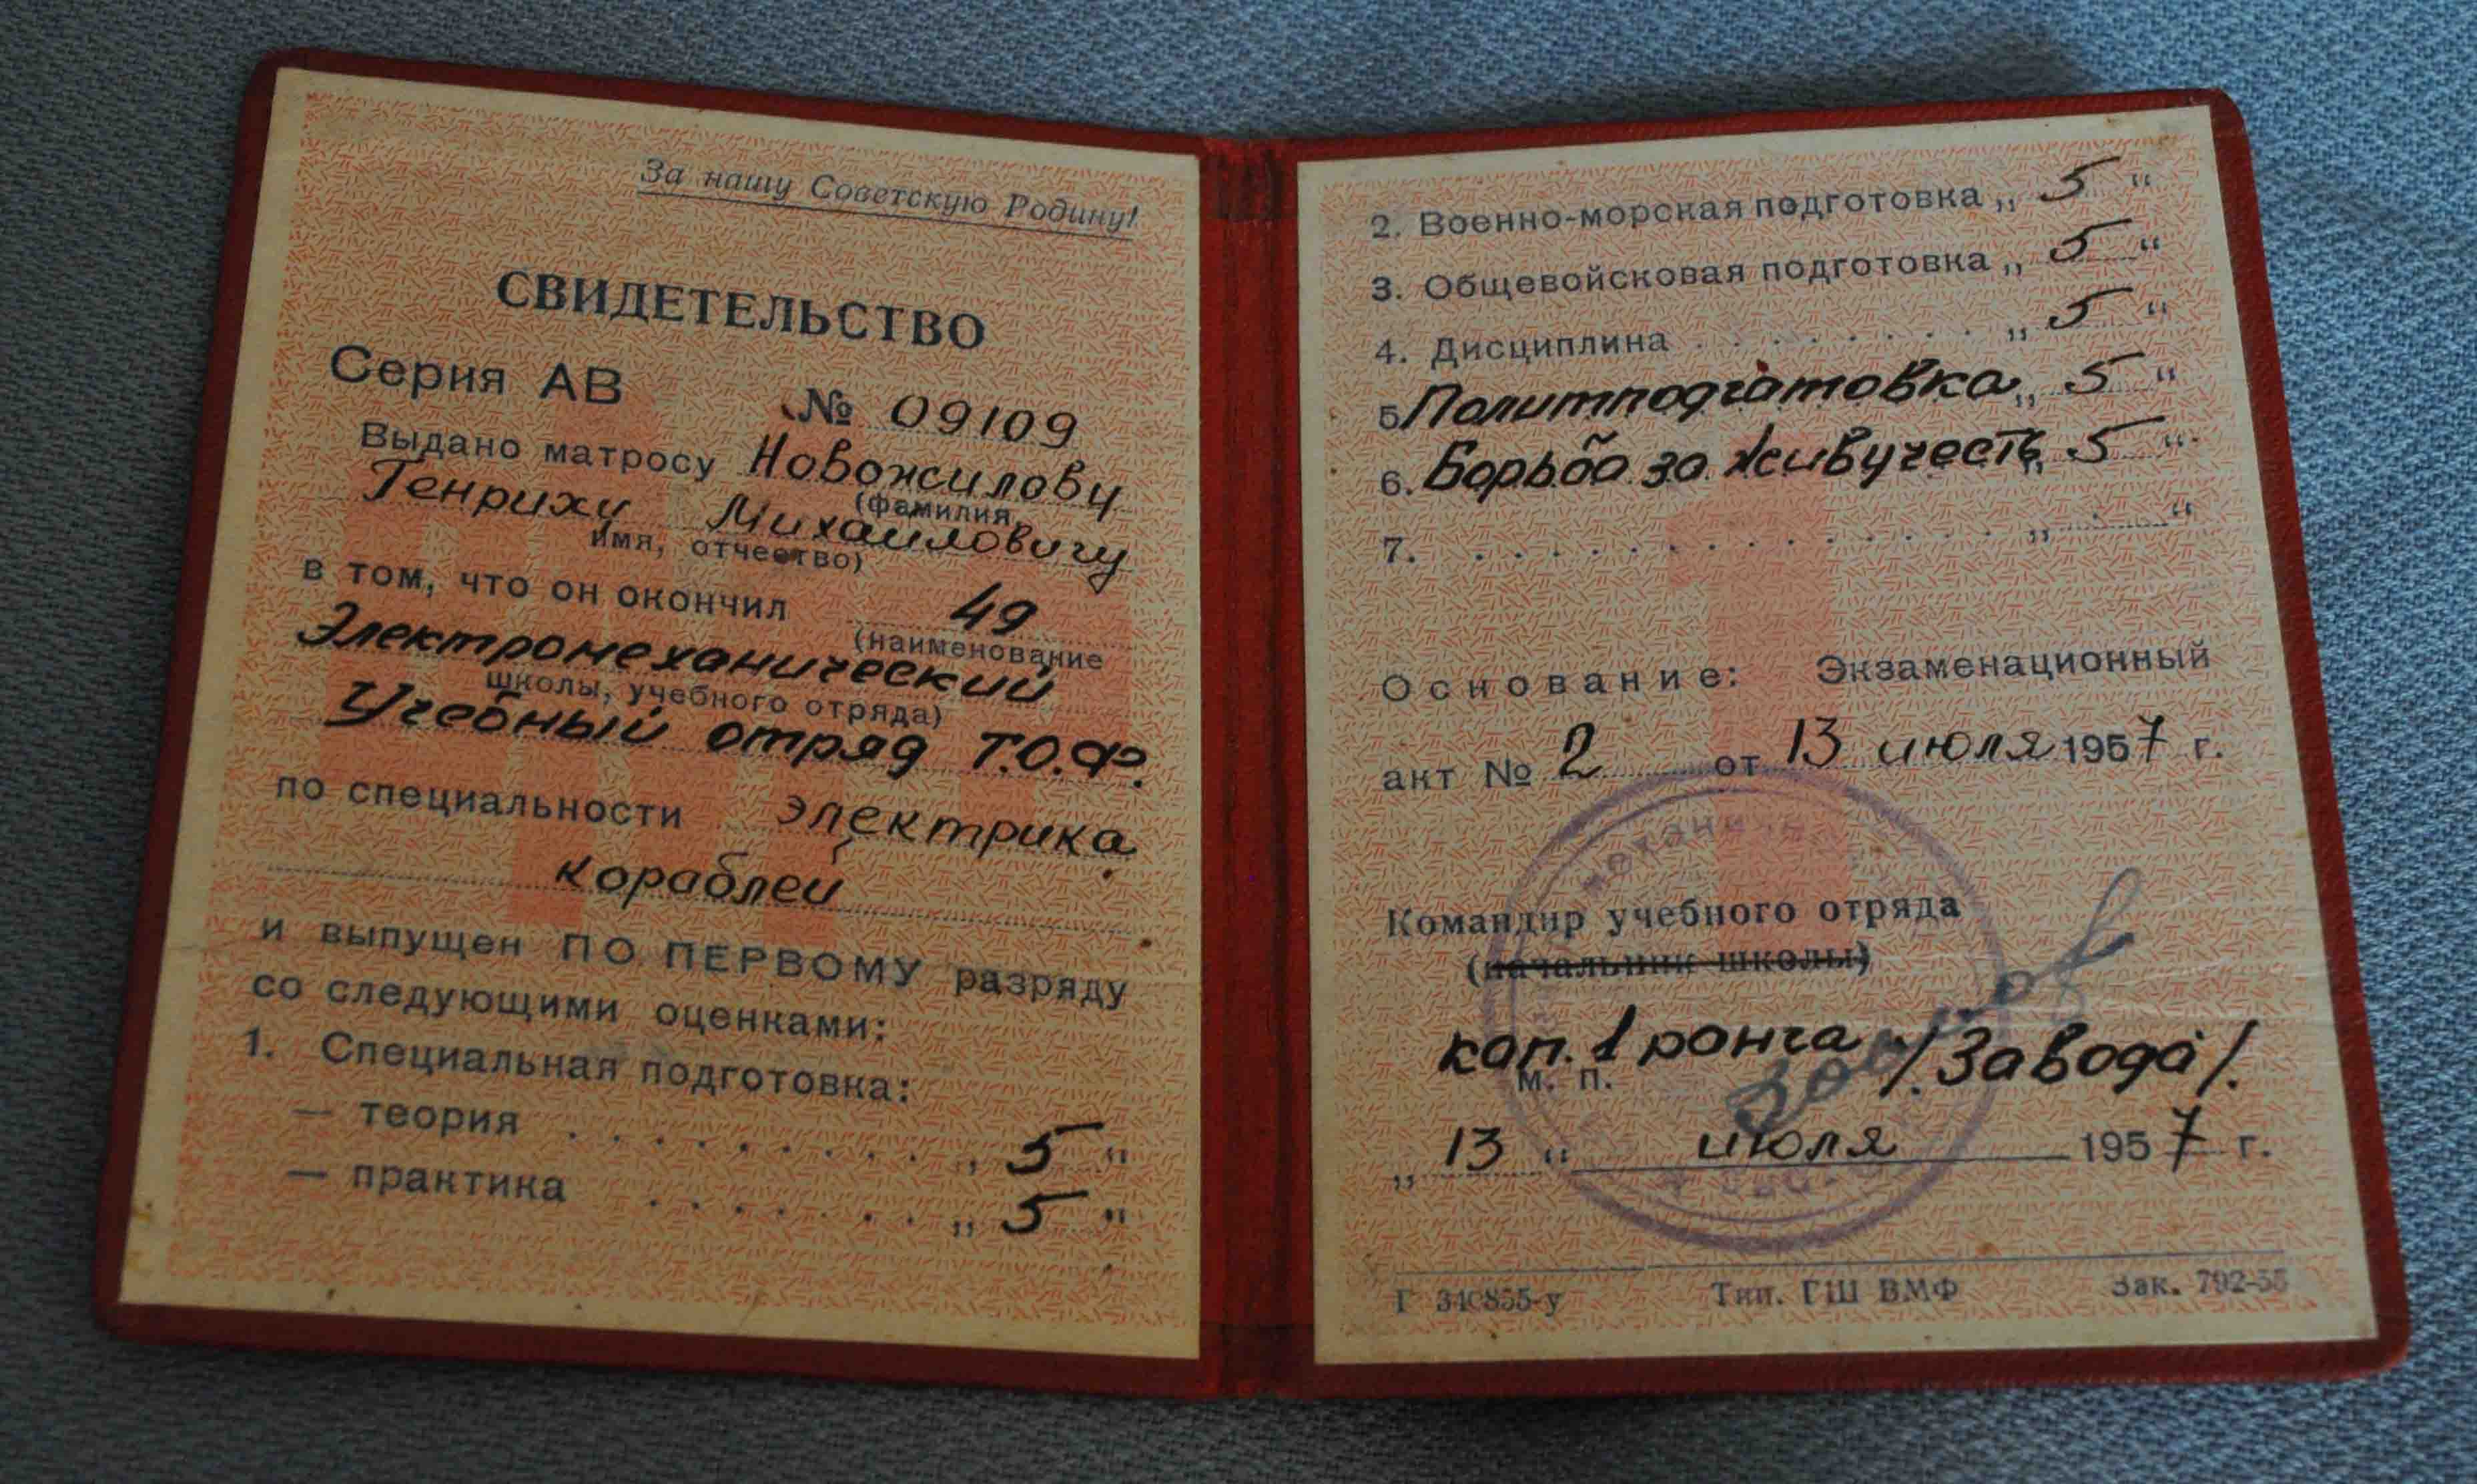 За нашу Советскую Родину!
СВИДЕТЕЛЬСТВО
Серия АВ № 09109
Выдано матросу Новожилову
(фамилия,
Генриху Михайловичу
имя, отчество)
в том, что он окончил 49
(наименование
Электромеханический
школы, учебного отряда)
Учебный отряд Т.О.Ф.
по специальности электрика
кораблей
и выпущен ПО ПЕРВОМУ разряду
со следующими оценками:
1. Специальная подготовка:
— теория . . . . . . . . „ 5 “
— практика . . . . . . . „ 5 “
2. Военно-морская подготовка „ 5 “
3. Общевойсковая подготовка „ 5 “
4. Дисциплина . . . . . . . . „ 5 “
5. Политподготовка „ 5 “
6. Борьба за живучесть „ 5 “
7. . . . . . . . . . . . . . „ “
Основание: Экзаменационный
акт № 2 от 13 июля 1957 г.
Командир учебного отряда
(начальник школы)
кап. 1 ранга /Завода/.
м. п.
„ 13 “ июля 1957 г.
Г 340855-у Тип. ГШ ВМФ Зак. 792-55